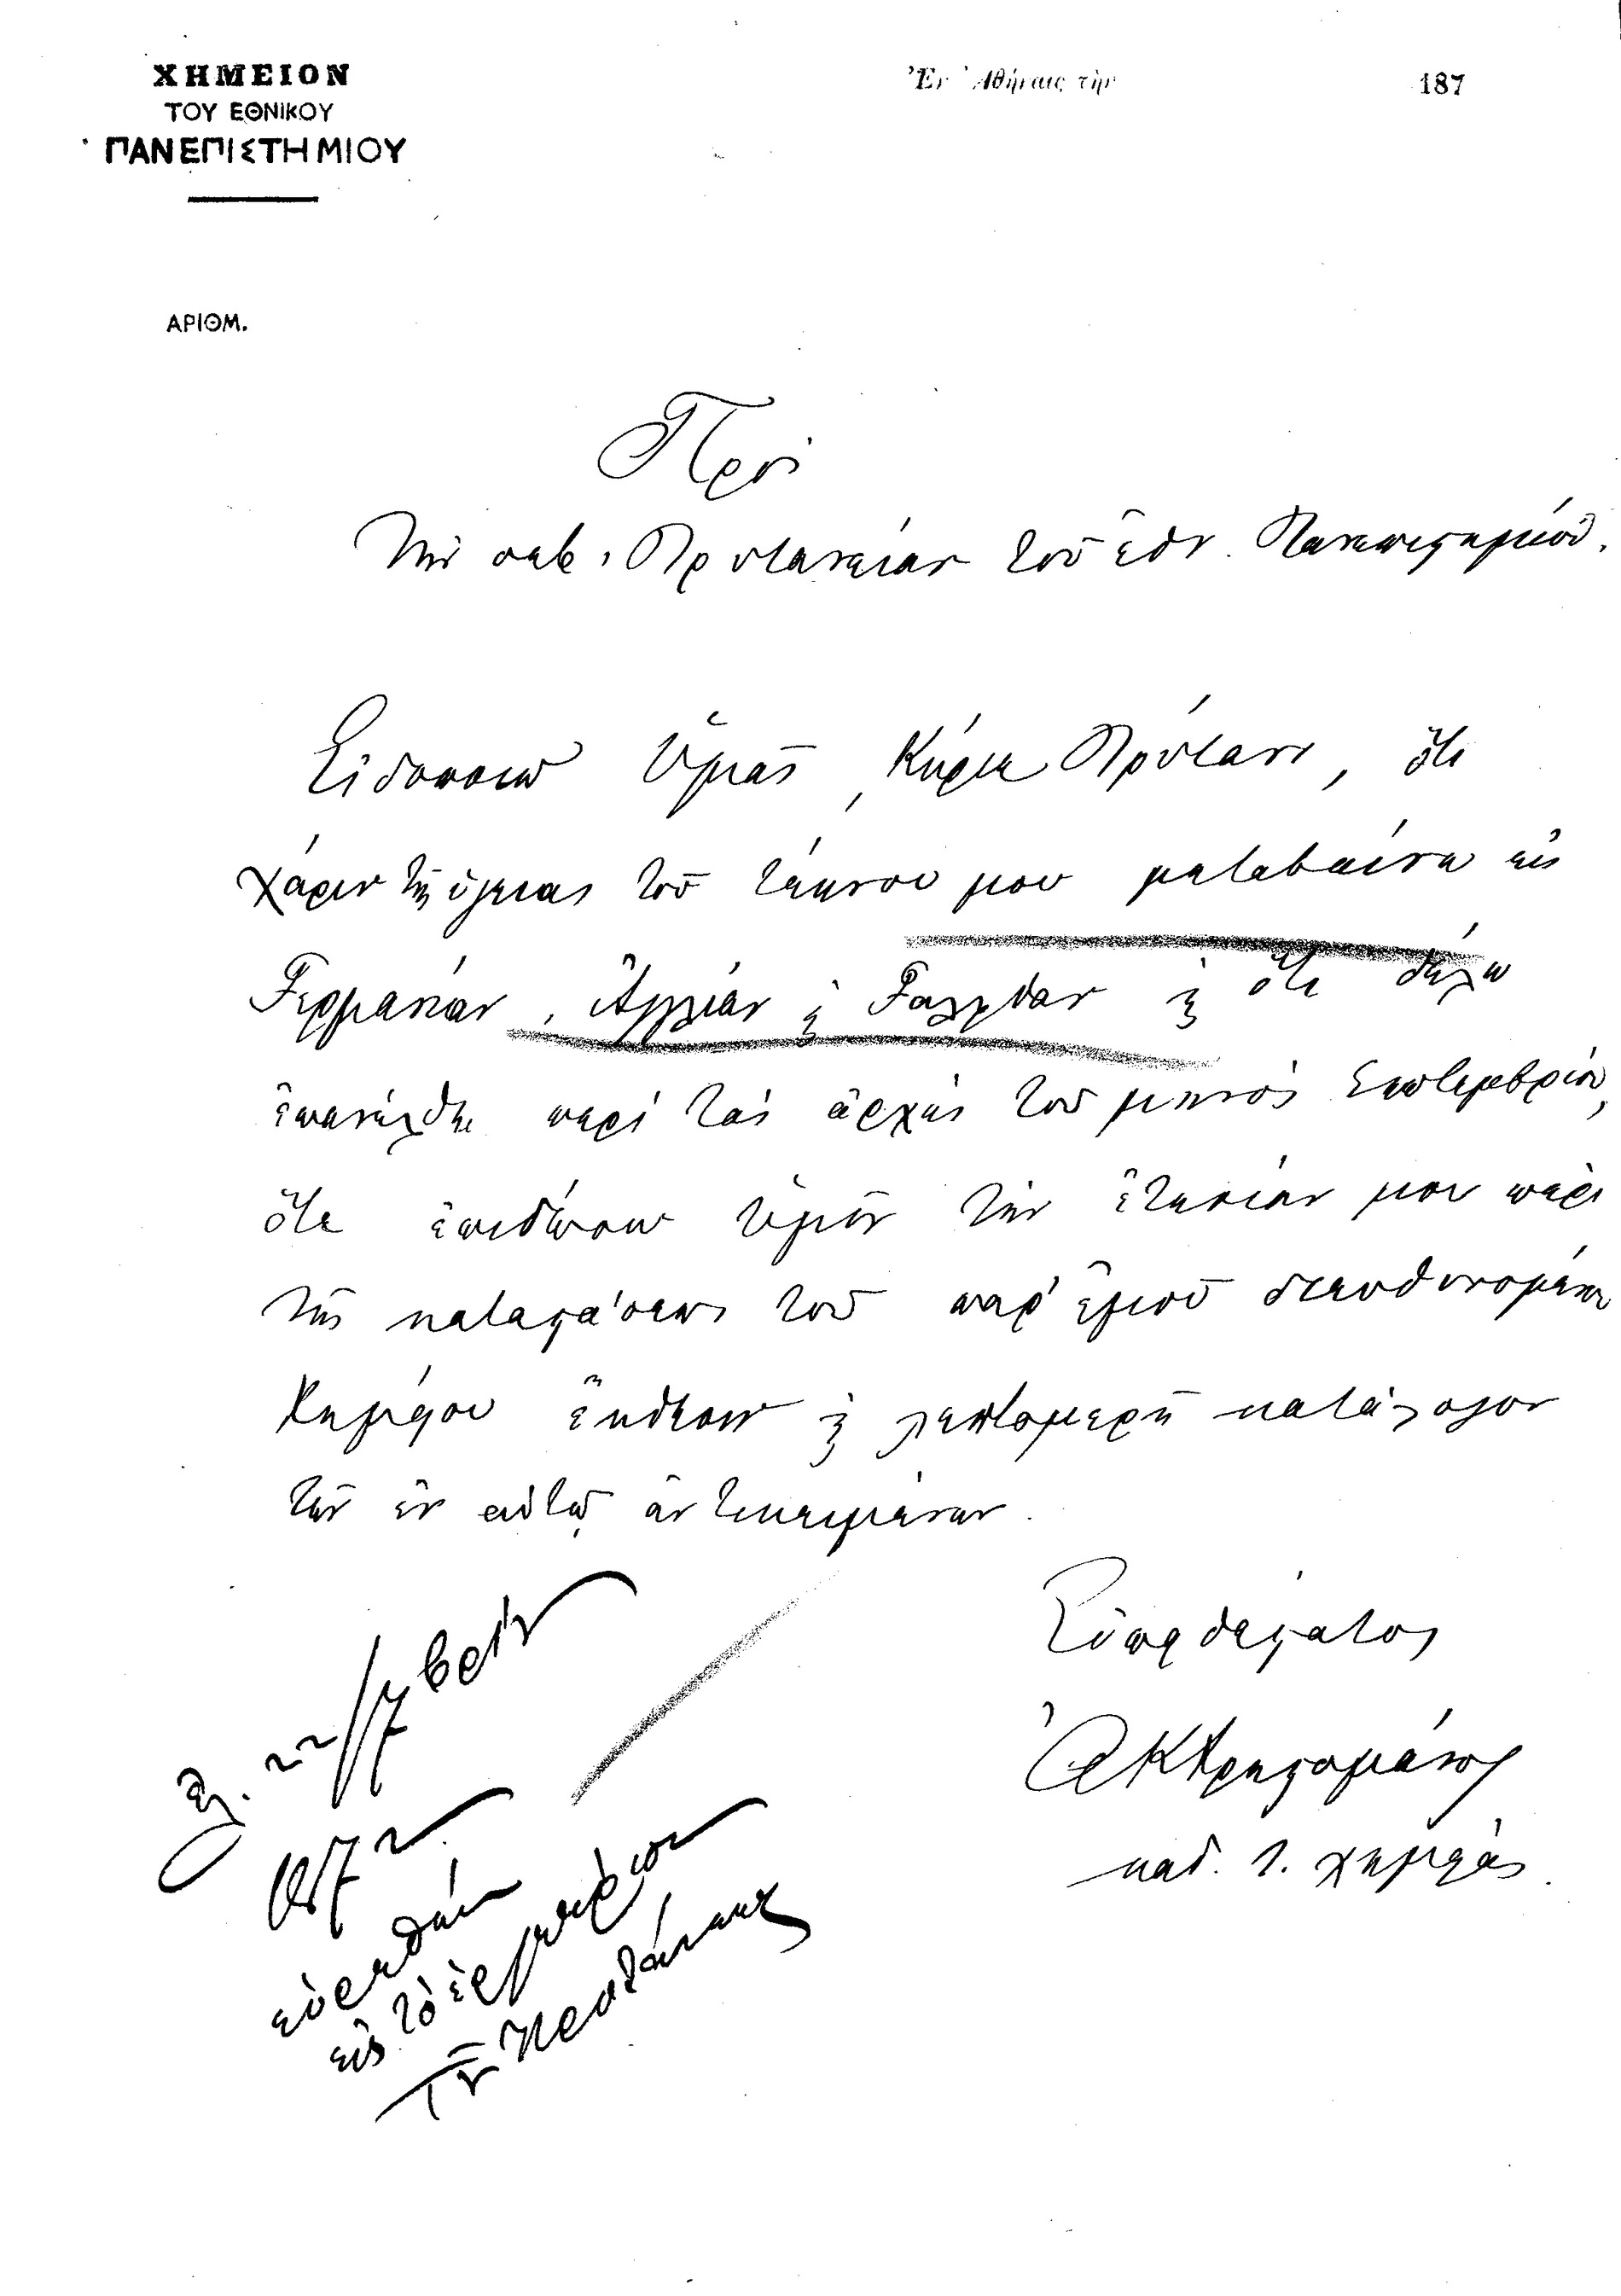 ΧΗΜΕΙΟΝ
ΤΟΥ ΕΘΝΙΚΟΥ
ΠΑΝΕΠΙΣΤΗΜΙΟΥ
Ἐν Ἀθήναις τὴν 187
ΑΡΙΘΜ.
Πρὸς
τὴν σεβ. Πρυτανείαν τοῦ Ἐθν. Πανεπιστημίου.
Εἰδοποιῶ Ὑμᾶς, Κύριε Πρύτανι, ὅτι
χάριν τῆς ὑγείας τοῦ τέκνου μου μεταβαίνω εἰς
Γερμανίαν, Ἀγγλίαν ἢ Γαλλίαν καὶ ὅτι θέλω
ἐπανέλθει περὶ τὰς ἀρχὰς τοῦ μηνὸς Σεπτεμβρίου,
ὅτε ἐπιδώσω ὑμῖν τὴν ἐτησίαν μου περὶ
τῆς καταστάσεως τοῦ παρ' ἐμοῦ διευθυνομένου
Χημείου ἔκθεσιν καὶ λεπτομερῆ κατάλογον
τῶν ἐν αὐτῷ ἀντικειμένων.
Εὐπειθέστατος
Α Κ Χρηστομάνος
καθ. τ. χημείας.
22/7
εὑρεθὲν
εἰς τὸ
τῆς Πρυτανείας